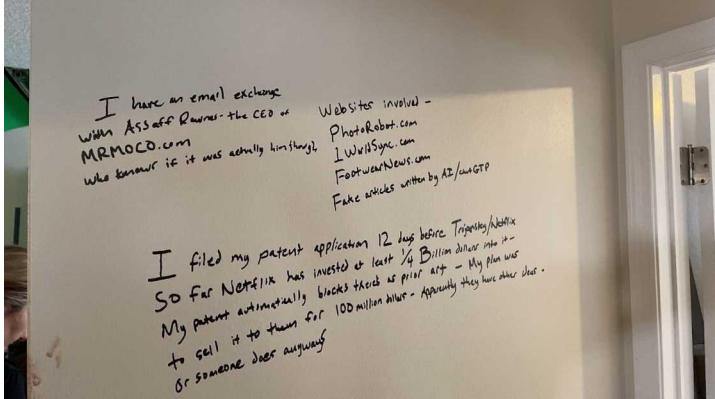 I have an email exchange
with Assaff Rawner - the CEO of
MRMOCO.com
who knows if it was actually him though
Websites involved -
PhotoRobot.com
1WorldSync.com
FootwearNews.com
Fake articles written by AI/chatGTP
I filed my patent application 12 days before /Netflix
So far Netflix has invested at least 1/4 Billion dollars into it -
My patent automatically blocks theirs as prior art - My plan was
to sell it to them for 100 million dollars - Apparently they have other ideas.
Or someone does anyways